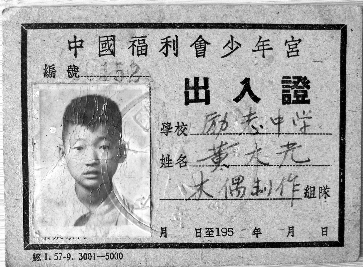 中國福利會少年宮
編號 1552
出入證
學校 励志中学
姓名 黄大尧
木偶制作 組隊
月 日至195 年 月 日
總 1. 57-9. 3001—5000